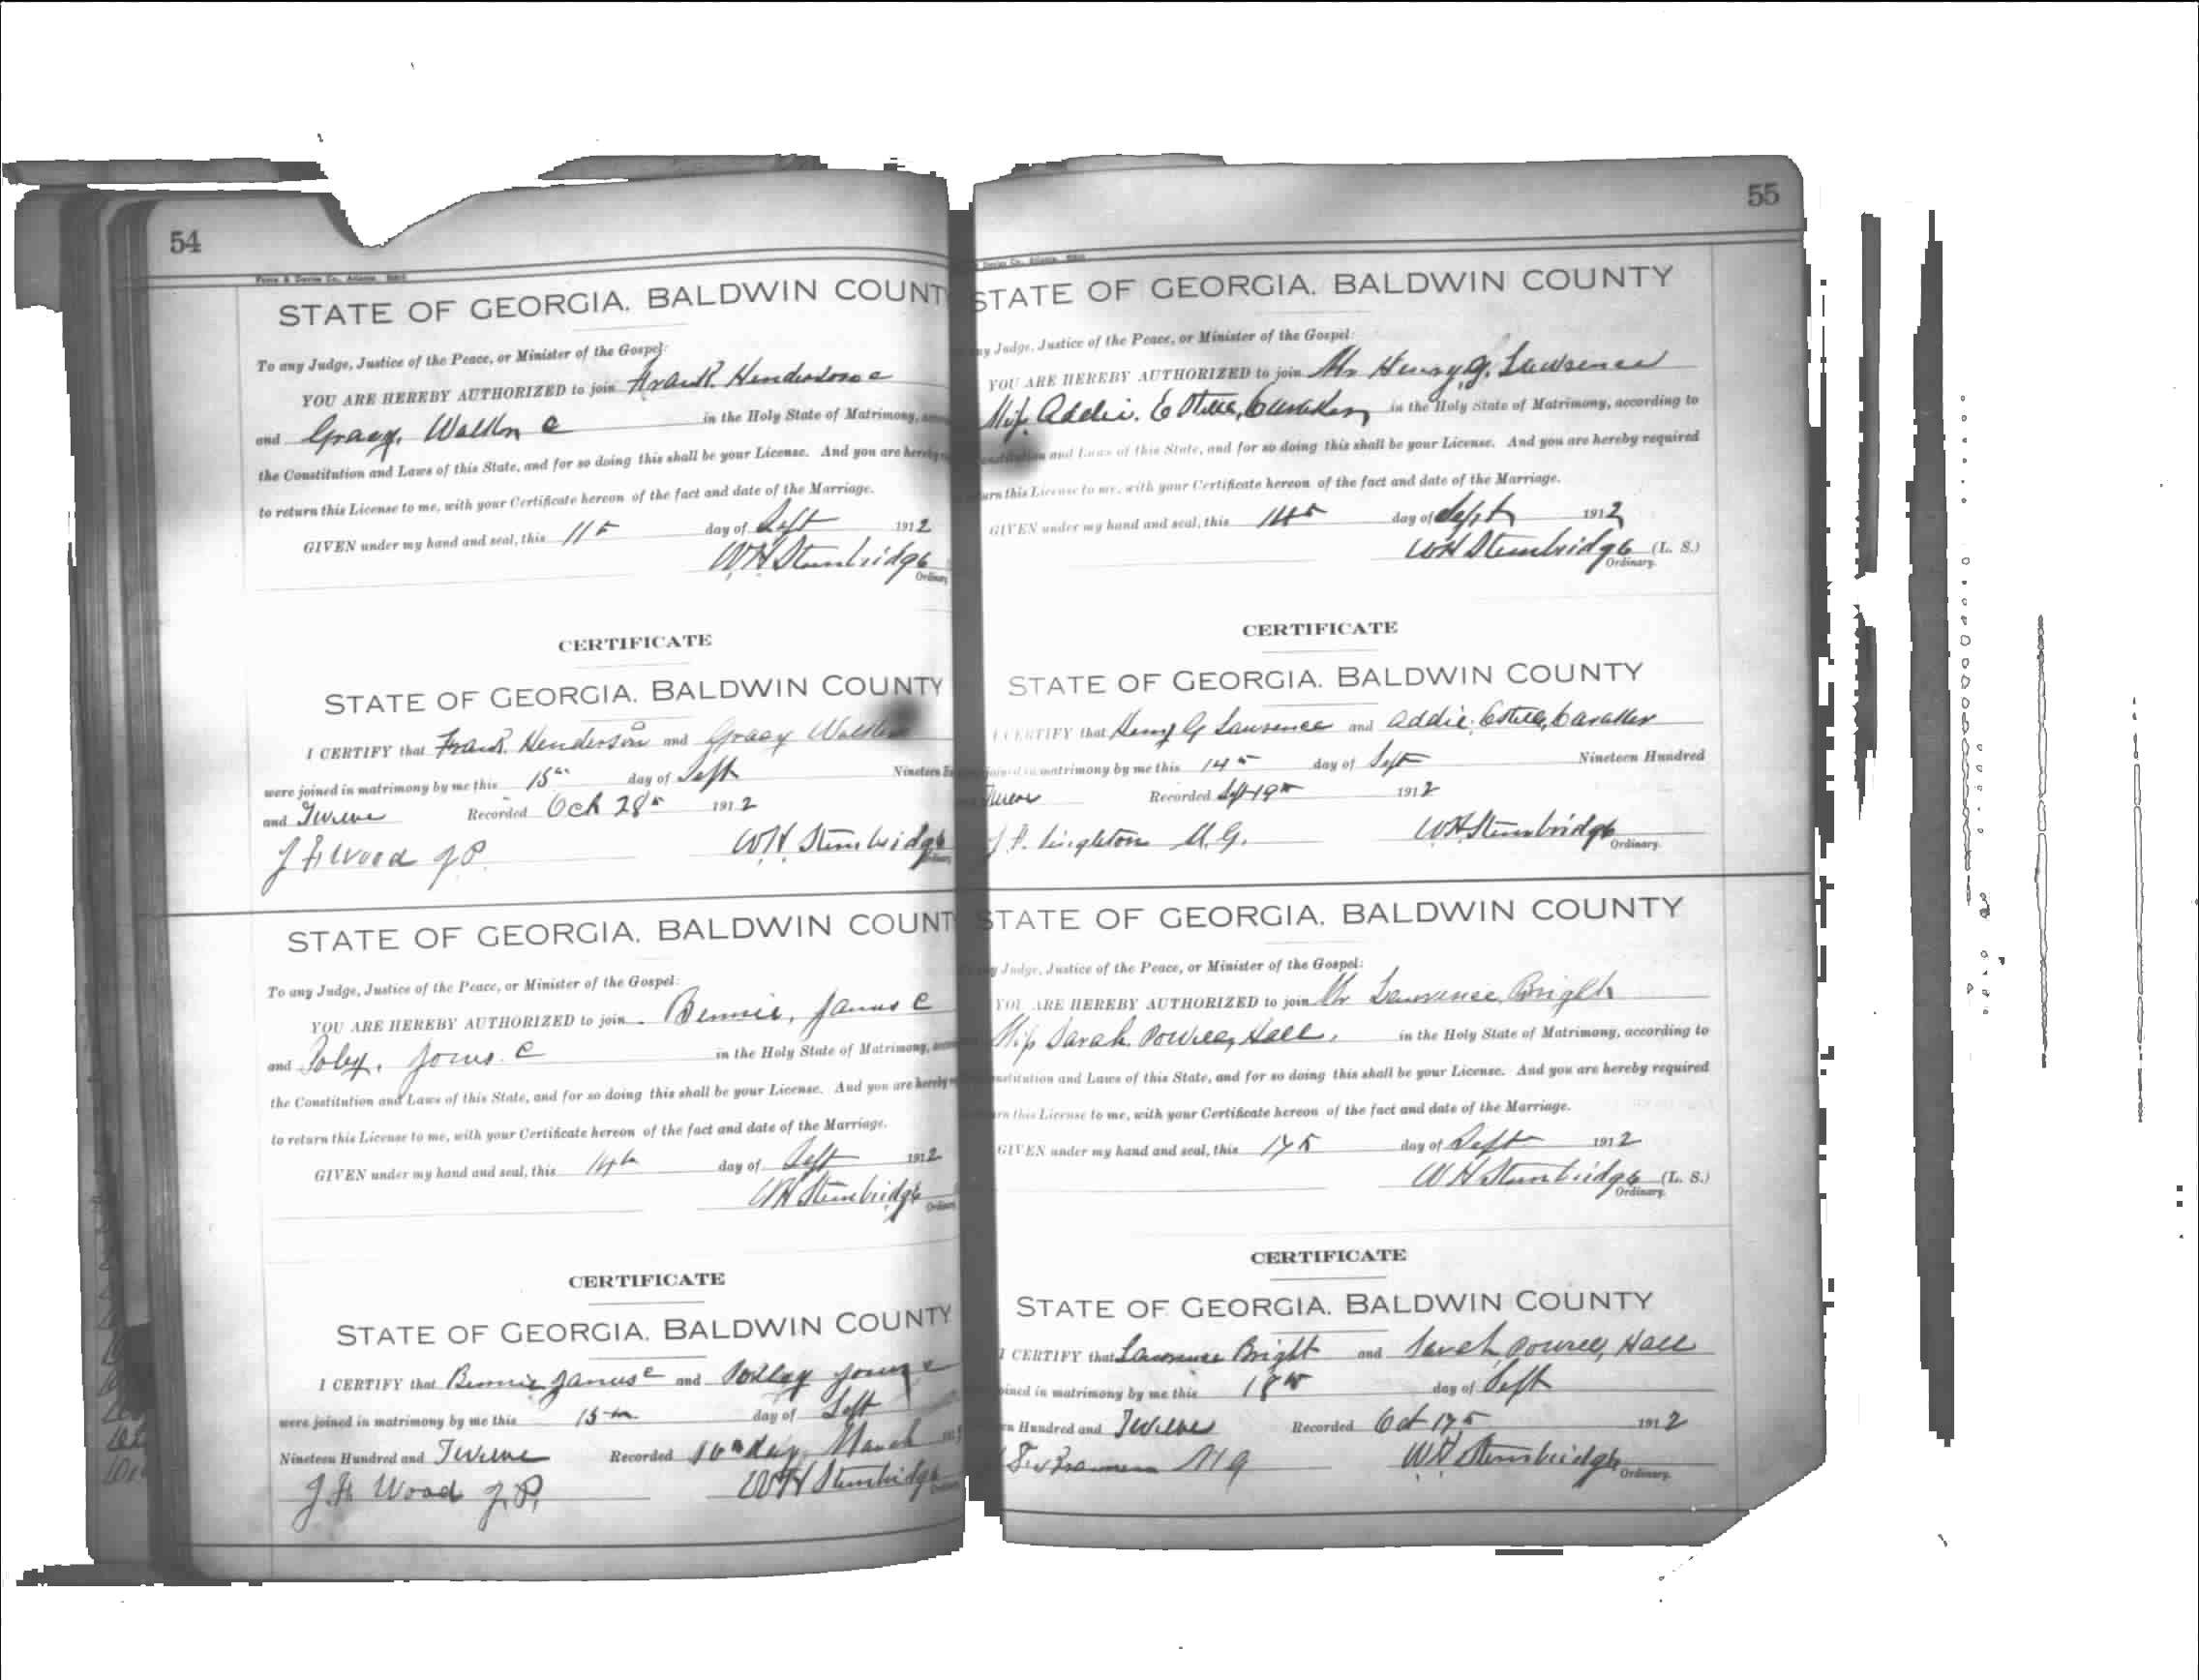 54
STATE OF GEORGIA. BALDWIN COUNT
To any Judge, Justice of the Peace, or Minister of the Gospel:
YOU ARE HEREBY AUTHORIZED to join Frank Henderson c
and Gracy Walker c in the Holy State of Matrimony,
the Constitution and Laws of this State, and for so doing this shall be your License. And you are hereby
to return this License to me, with your Certificate hereon of the fact and date of the Marriage.
GIVEN under my hand and seal, this 11th day of Sept 1912
WH Stembridge
Ordinary
CERTIFICATE
STATE OF GEORGIA. BALDWIN COUNTY
I CERTIFY that Frank Henderson and Gracy Walker
were joined in matrimony by me this 15th day of Sept Nineteen
and Twelve Recorded Oct 28th 1912
J H Wood J.P. WH Stembridge
STATE OF GEORGIA. BALDWIN COUNT
To any Judge, Justice of the Peace, or Minister of the Gospel:
YOU ARE HEREBY AUTHORIZED to join Bennie, c
and c in the Holy State of Matrimony,
the Constitution and Laws of this State, and for so doing this shall be your License. And you are hereby
to return this License to me, with your Certificate hereon of the fact and date of the Marriage.
GIVEN under my hand and seal, this 14th day of Sept 1912
WH Stembridge
CERTIFICATE
STATE OF GEORGIA. BALDWIN COUNTY
I CERTIFY that Bennie c and c
were joined in matrimony by me this 15th day of Sept
Nineteen Hundred and Twelve Recorded 10th day March
J H Wood J.P. WH Stembridge
55
STATE OF GEORGIA. BALDWIN COUNTY
ny Judge, Justice of the Peace, or Minister of the Gospel:
YOU ARE HEREBY AUTHORIZED to join Mr Henry G. Lawrence
Miss Addie. Estelle, in the Holy State of Matrimony, according to
and Laws of this State, and for so doing this shall be your License. And you are hereby required
urn this License to me, with your Certificate hereon of the fact and date of the Marriage.
GIVEN under my hand and seal, this 14th day of Sept 1912
WH Stembridge (L. S.)
Ordinary.
CERTIFICATE
STATE OF GEORGIA. BALDWIN COUNTY
I CERTIFY that Henry G Lawrence and Addie. Estelle,
joined in matrimony by me this 14th day of Sept Nineteen Hundred
Twelve Recorded Sept 19th 1912
Singleton M.G. WH Stembridge
Ordinary.
STATE OF GEORGIA. BALDWIN COUNTY
y Judge, Justice of the Peace, or Minister of the Gospel:
YOU ARE HEREBY AUTHORIZED to join Mr Lawrence Bright
Miss Sarah. Powell, Hall. in the Holy State of Matrimony, according to
nstitution and Laws of this State, and for so doing this shall be your License. And you are hereby required
rn this License to me, with your Certificate hereon of the fact and date of the Marriage.
GIVEN under my hand and seal, this 17th day of Sept 1912
WH Stembridge (L. S.)
Ordinary.
CERTIFICATE
STATE OF GEORGIA. BALDWIN COUNTY
I CERTIFY that Lawrence Bright and Sarah Powell, Hall
oined in matrimony by me this 18th day of Sept
n Hundred and Twelve Recorded Oct 17th 1912
M G WH Stembridge
Ordinary.